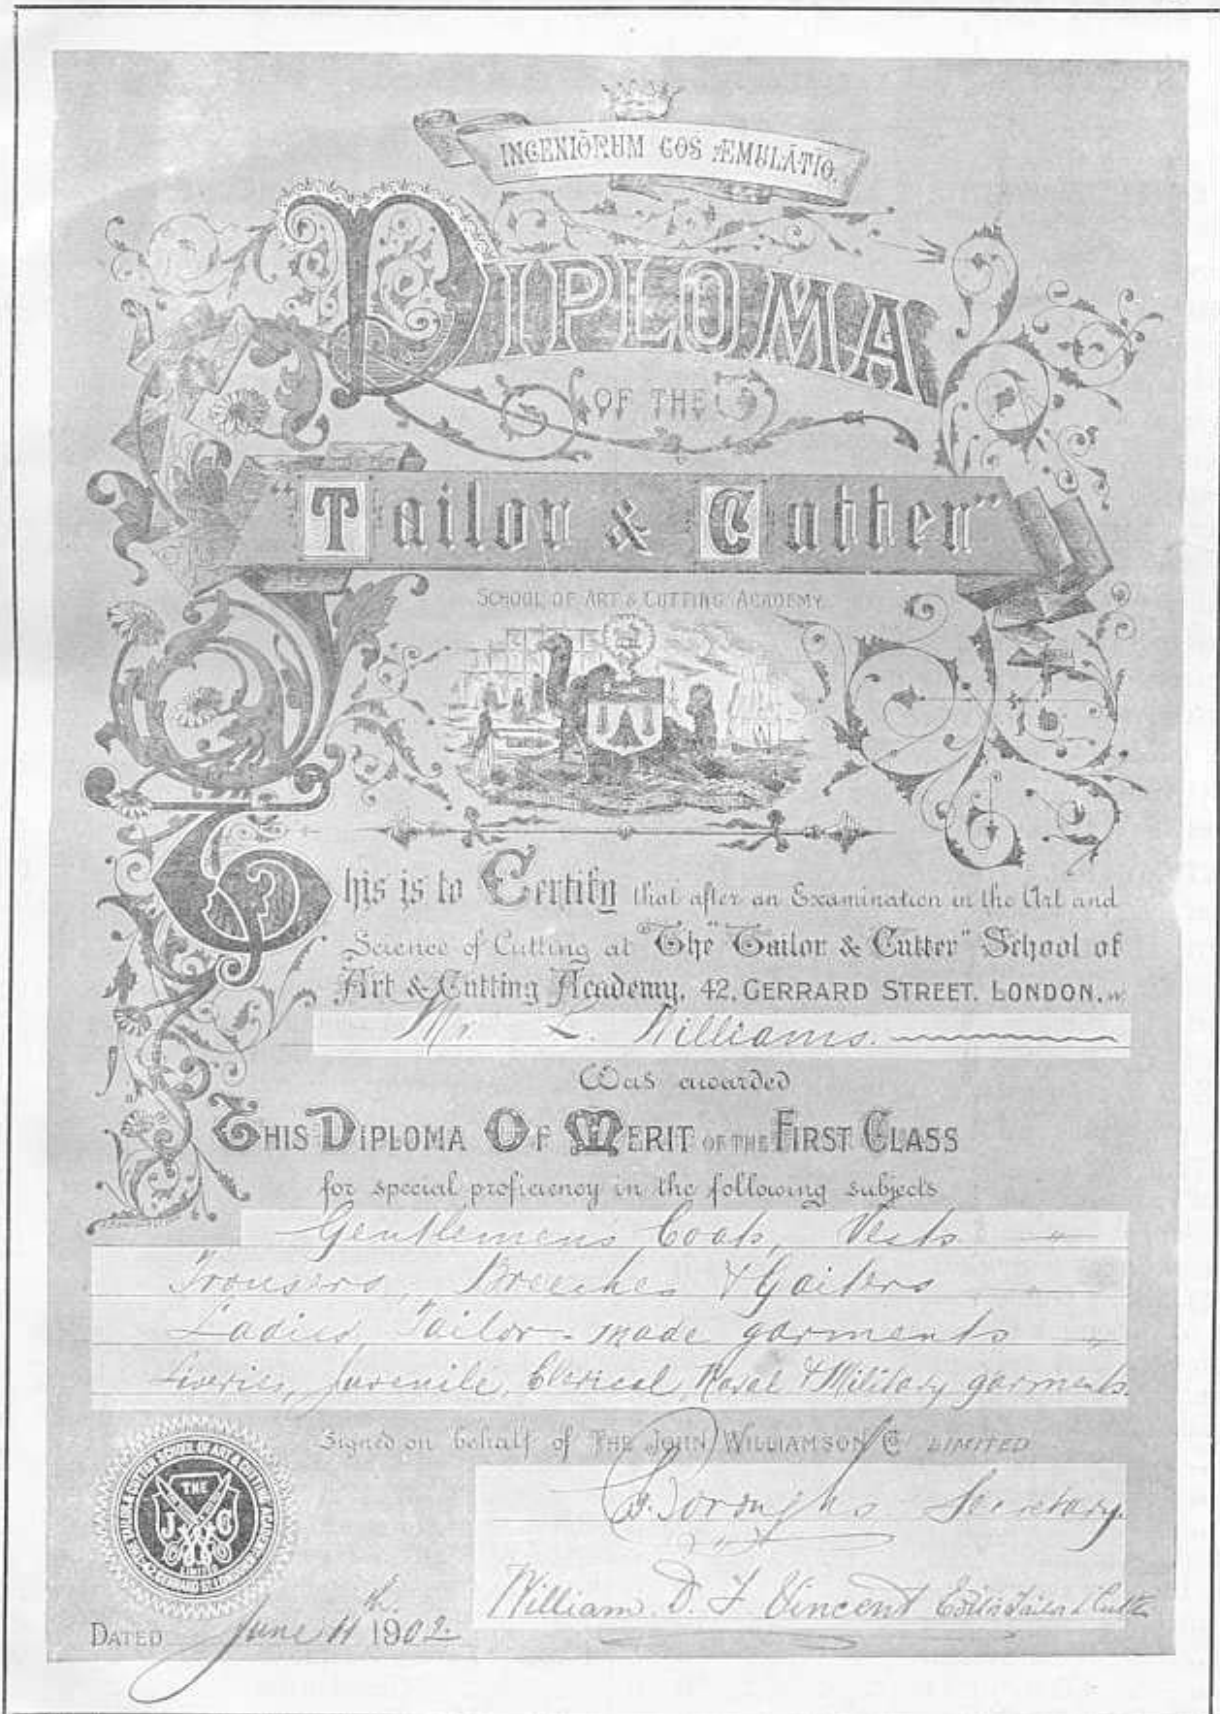 INGENIORUM COS ÆMULATIO.
DIPLOMA
OF THE
"Tailor & Cutter"
SCHOOL OF ART & CUTTING ACADEMY.
This is to Certify that after an Examination in the Art and
Science of Cutting at "The "Tailor & Cutter" School of
Art & Cutting Academy, 42, GERRARD STREET, LONDON, W
Mr. L. Williams.
Was awarded
THIS DIPLOMA OF MERIT OF THE FIRST CLASS
for special proficiency in the following subjects
Gentlemen's Coats, Vests "
Trousers, Breeches & Gaiters
Ladies, Tailor-made garments "
Liveries, Juvenile, Clerical, Naval & Military garments.
Signed on behalf of THE JOHN WILLIAMSON Co LIMITED
Secretary.
William D. F. Vincent Editor Tailor & Cutter
THE TAILOR & CUTTER SCHOOL OF ART & CUTTING ACADEMY
THE
J W Co
LIMITED
42 GERRARD ST LONDON W
DATED June 11th. 1902.